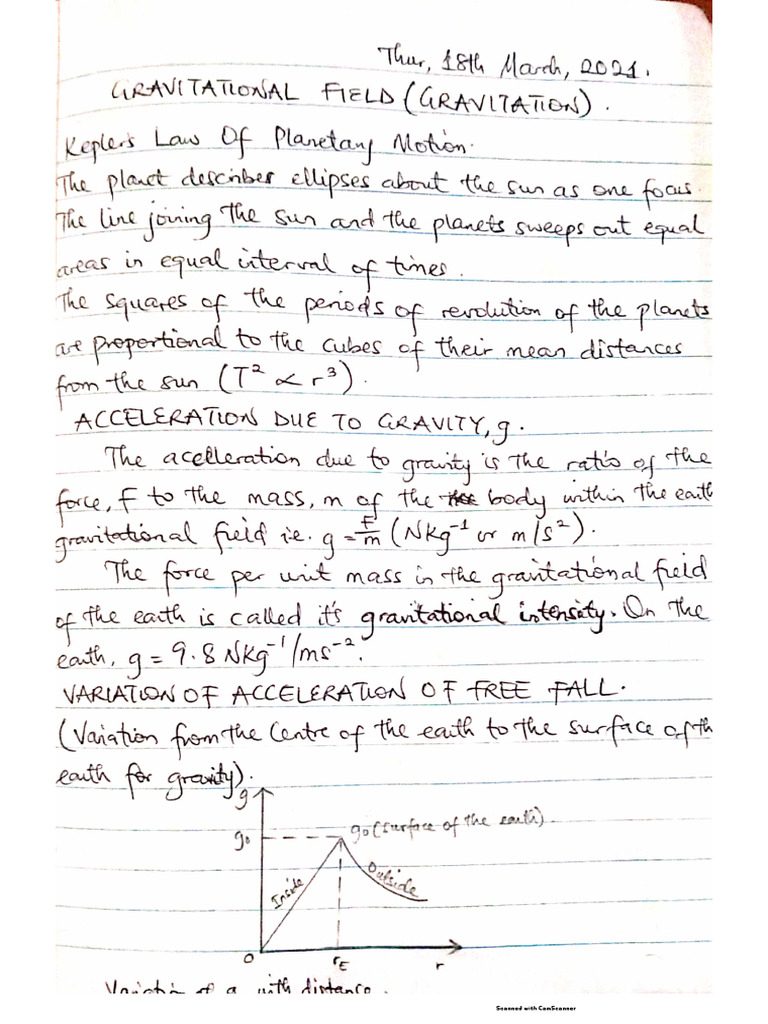 Thur, 18th March, 2021.
GRAVITATIONAL FIELD (GRAVITATION).
Kepler's Law Of Planetary Motion.
The planet describes ellipses about the sun as one focus.
The line joining the sun and the planets sweeps out equal
areas in equal interval of times.
The squares of the periods of revolution of the planets
are proportional to the cubes of their mean distances
from the sun (T² ∝ r³).
ACCELERATION DUE TO GRAVITY, g.
The acelleration due to gravity is the ratio of the
force, F to the mass, m of the body within the earth
gravitational field i.e. g = F/m (NKg⁻¹ or m/s²).
The force per unit mass in the gravitational field
of the earth is called it's gravitational intensity. On the
earth, g = 9.8 NKg⁻¹/ms⁻².
VARIATION OF ACCELERATION OF FREE FALL.
(Variation from the Centre of the earth to the surface of th
earth for gravity).
g
g₀
g₀ (surface of the earth).
Inside
Outside
O
r_E
r
Variation of g with distance.
Scanned with CamScanner